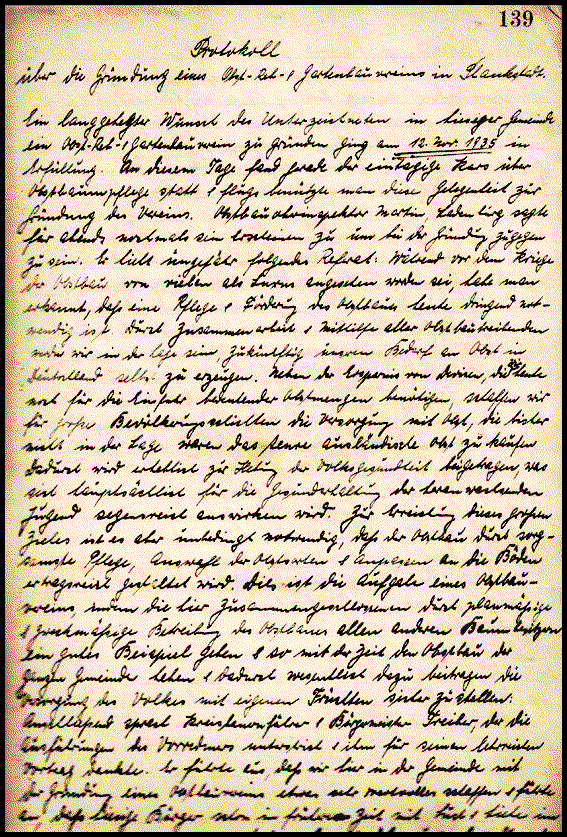 139
Protokoll
über die Gründung eines Obst- & Gartenbauvereins in Plankstadt.
Ein langgehegter Wunsch des Unterzeichneten in hiesiger Gemeinde
ein Obst- & Gartenbauverein zu gründen ging am 12. Nov. 1935 in
Erfüllung. An diesem Tage fand gerade der eintägige Kurs über
Obstbaumpflege statt & flugs benützte man diese Gelegenheit zur
Gründung des Vereins. Obstbauoberinspektor Martin, Ladenburg sagte
für abends nochmals sein Erscheinen zu um bei der Gründung zugegen
zu sein. Er hielt ungefähr folgendes Referat: Während vor dem Kriege
der Obstbau von vielen als Luxus angesehen worden sei, habe man
erkannt, daß eine Pflege & Förderung des Obstbaues heute dringend not-
wendig ist. Durch Zusammenarbeit & Mithilfe aller Obstbautreibenden
werden wir in der Lage sein, zukünftig unseren Bedarf an Obst in
Deutschland selbst zu erzeugen. Neben der Ersparnis von Devisen, die wir heute
noch für die Einfuhr bedeutender Obstmengen benötigen, schaffen wir
für große Bevölkerungsschichten die Versorgung mit Obst, die bisher
nicht in der Lage waren das teure ausländische Obst zu kaufen
Dadurch wird erheblich zur Hebung der Volksgesundheit beigetragen, was
sich hauptsächlich für die Gesunderhaltung der heranwachsenden
Jugend segensreich auswirken wird. Zur Erreichung dieses großen
Zieles ist es aber unbedingt notwendig, daß der Obstbau durch sorg-
samste Pflege, Auswahl der Obstsorten & Anpassen an die Böden
ertragsreich gestaltet wird. Dies ist die Aufgabe eines Obstbau-
vereins, indem die hier Zusammengeschlossenen durch planmäßige
& zweckmäßige Betreibung des Obstbaues allen anderen Baumbesitzern
ein gutes Beispiel geben & so mit der Zeit den Obstbau der
ganzen Gemeinde heben & dadurch wesentlich dazu beitragen die
Versorgung des Volkes mit eigenen Früchten sicher zu stellen.
Anschließend sprach & Bürgermeister Treiber, der die
Ausführungen des Vorredners unterstrich & ihm für seinen lehrreichen
Vortrag dankte. Er führte aus, daß wir hier in der Gemeinde mit
der Gründung eines Obstbauvereins etwas sehr wertvolles schaffen & führte
an, daß Bürger schon in früherer Zeit mit & Liebe im